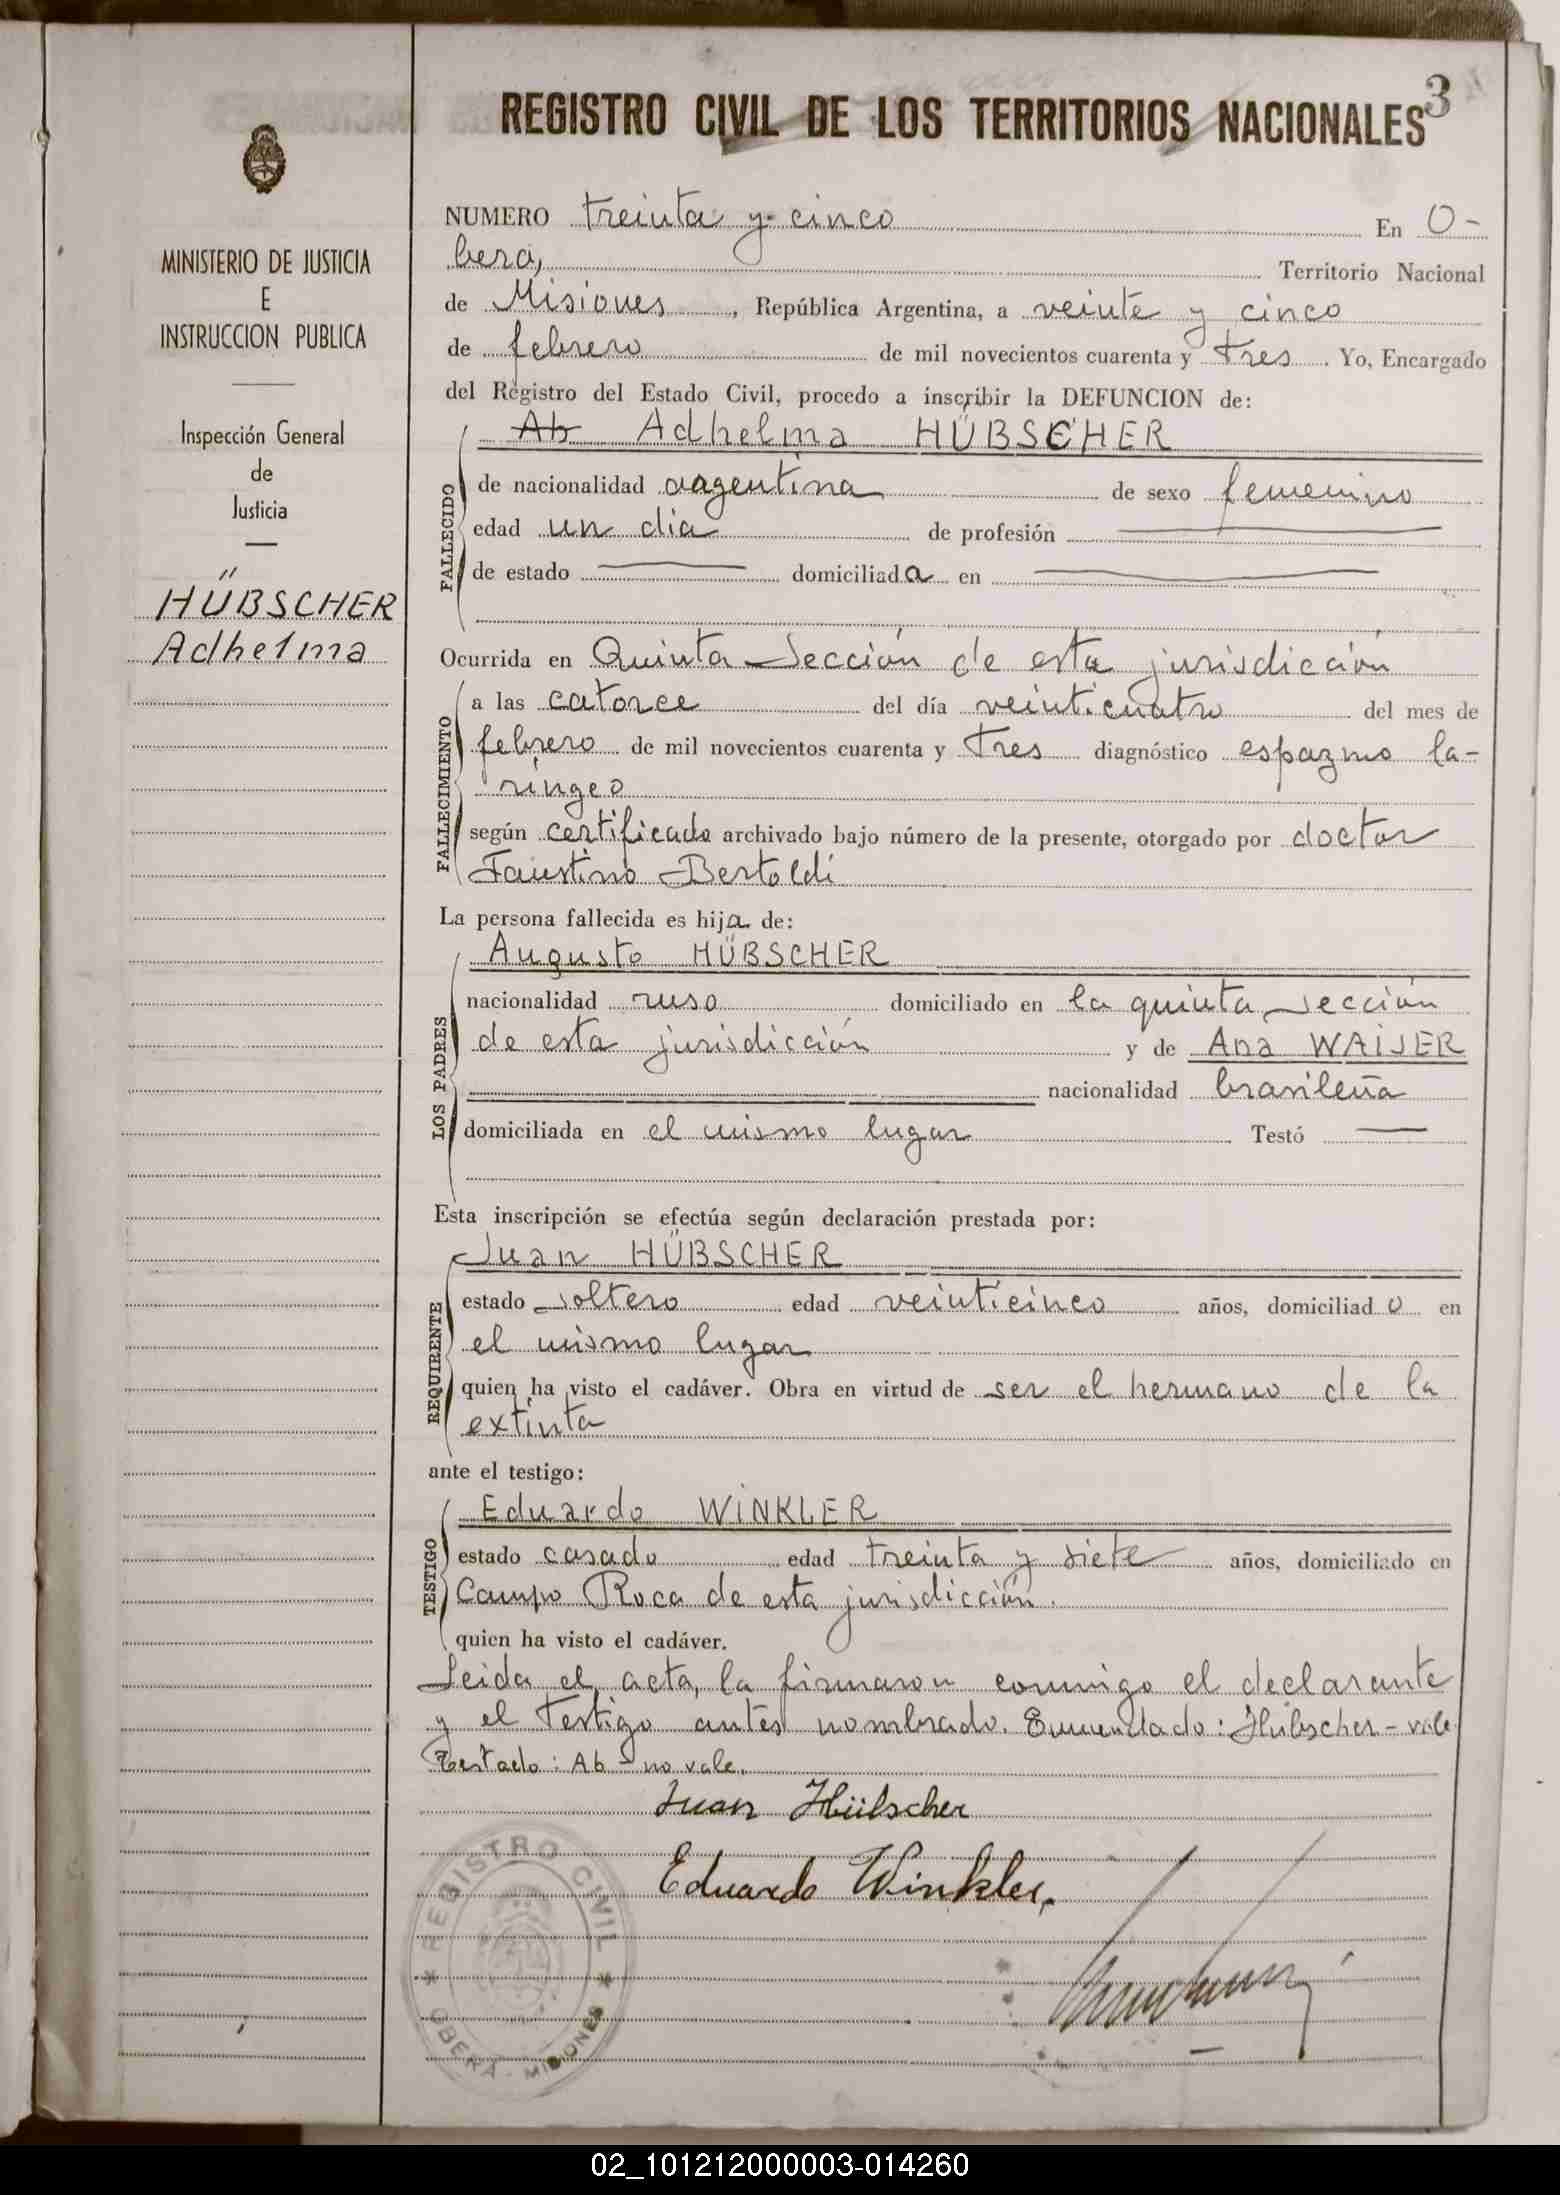 3
REGISTRO CIVIL DE LOS TERRITORIOS NACIONALES
MINISTERIO DE JUSTICIA
E
INSTRUCCION PUBLICA
Inspección General
de
Justicia
HÜBSCHER
Adhelma
NUMERO treinta y cinco En O-
berá, Territorio Nacional
de Misiones, República Argentina, a veinte y cinco
de febrero de mil novecientos cuarenta y tres. Yo, Encargado
del Registro del Estado Civil, procedo a inscribir la DEFUNCION de:
Ab Adhelma HÜBSCHER
FALLECIDO
de nacionalidad argentina de sexo femenino
edad un dia de profesión
de estado domiciliada en
Ocurrida en Quinta Sección de esta jurisdicción
FALLECIMIENTO
a las catorce del día veinticuatro del mes de
febrero de mil novecientos cuarenta y tres diagnóstico espazmo la-
ríngeo
según certificado archivado bajo número de la presente, otorgado por doctor
Faustino Bertoldi
La persona fallecida es hija de:
LOS PADRES
Augusto HÜBSCHER
nacionalidad ruso domiciliado en la quinta sección
de esta jurisdicción y de Ana WAISER
nacionalidad brasileña
domiciliada en el mismo lugar Testó
Esta inscripción se efectúa según declaración prestada por:
REQUIRENTE
Juan HÜBSCHER
estado soltero edad veinticinco años, domiciliado en
el mismo lugar
quien ha visto el cadáver. Obra en virtud de ser el hermano de la
extinta
ante el testigo:
TESTIGO
Eduardo WINKLER
estado casado edad treinta y siete años, domiciliado en
Campo Roca de esta jurisdicción.
quien ha visto el cadáver.
Leida el acta, la firmaron conmigo el declarante
y el testigo antes nombrado. Enmendado: Hübscher - vale
Testado: Ab - no vale.
Juan Hübscher
Eduardo Winkler.
REGISTRO CIVIL
OBERÁ - MISIONES
02_101212000003-014260